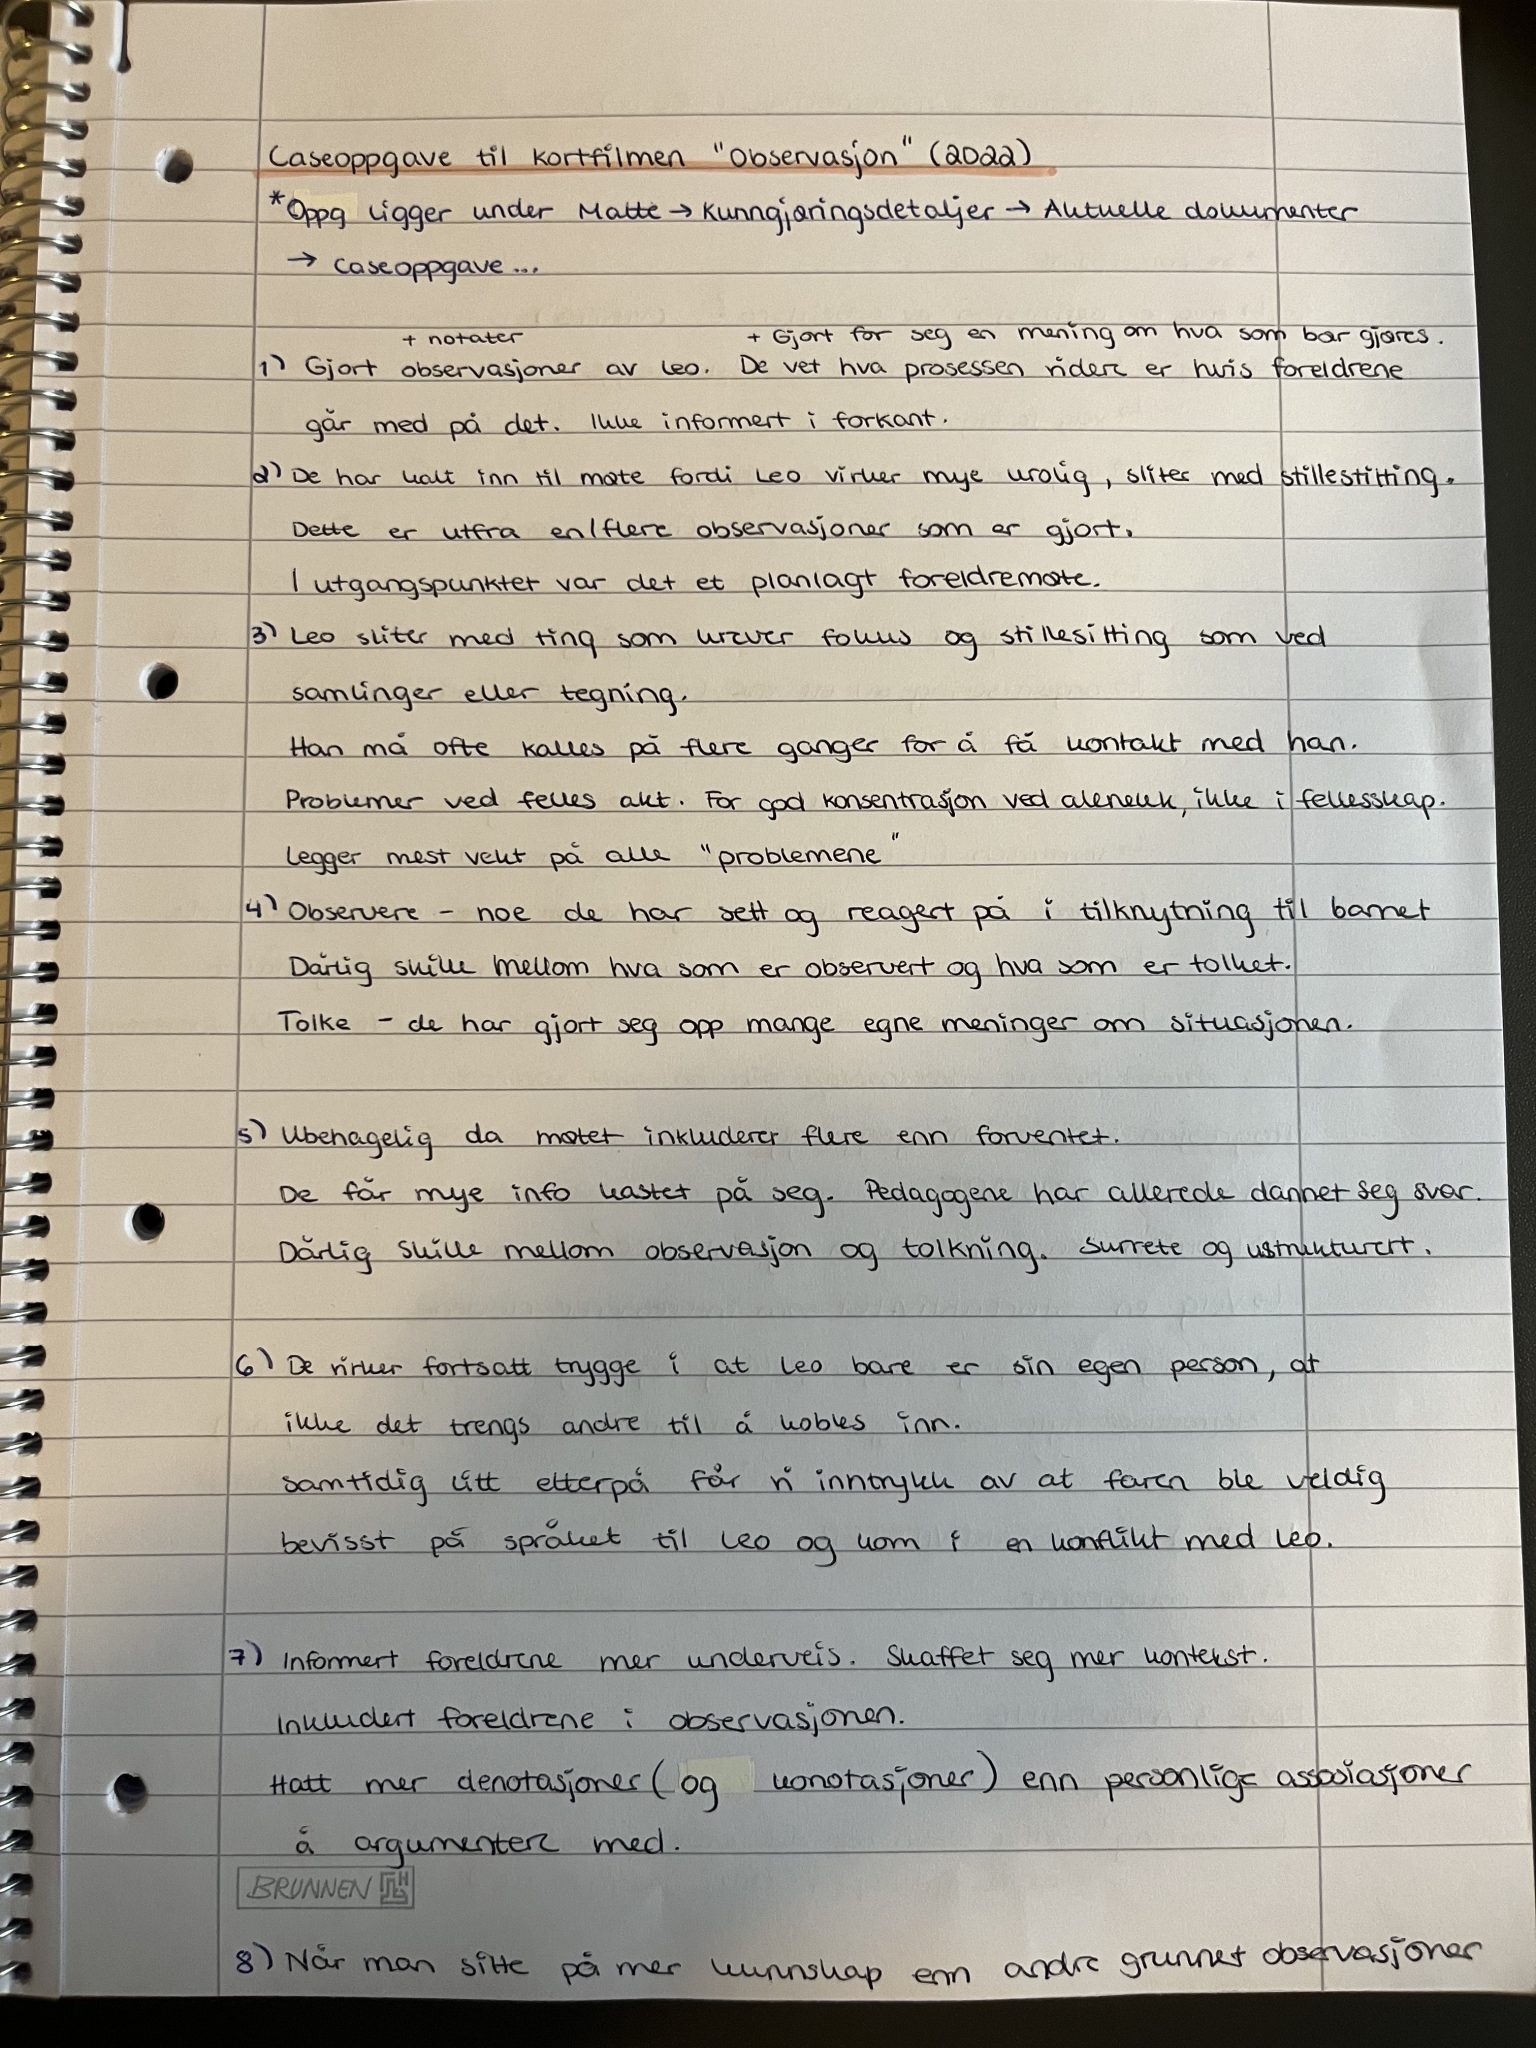 Caseoppgave til kortfilmen "Observasjon" (2022)
*Oppg ligger under Matte → Kunngjøringsdetaljer → Aktuelle dokumenter
→ caseoppgave...
+ notater + Gjort for seg en mening om hva som bør gjøres.
1) Gjort observasjoner av Leo. De vet hva prosessen videre er hvis foreldrene
går med på det. Ikke informert i forkant.
2) De har kalt inn til møte fordi Leo virker mye urolig, sliter med stillestitting.
Dette er utfra en/flere observasjoner som er gjort.
I utgangspunktet var det et planlagt foreldremøte.
3) Leo sliter med ting som krever fokus og stillesitting som ved
samlinger eller tegning.
Han må ofte kalles på flere ganger for å få kontakt med han.
Problemer ved felles akt. For god konsentrasjon ved alenelek, ikke i fellesskap.
Legger mest vekt på alle "problemene"
4) Observere - noe de har sett og reagert på i tilknytning til barnet
Dårlig skille mellom hva som er observert og hva som er tolket.
Tolke - de har gjort seg opp mange egne meninger om situasjonen.
5) Ubehagelig da møtet inkluderer flere enn forventet.
De får mye info kastet på seg. Pedagogene har allerede dannet seg svar.
Dårlig skille mellom observasjon og tolkning. Surrete og ustrukturert.
6) De virker fortsatt trygge i at Leo bare er sin egen person, at
ikke det trengs andre til å kobles inn.
Samtidig litt etterpå får vi inntrykk av at faren ble veldig
bevisst på språket til Leo og kom i en konflikt med Leo.
7) Informert foreldrene mer underveis. Skaffet seg mer kontekst.
Inkludert foreldrene i observasjonen.
Hatt mer denotasjoner (og konotasjoner) enn personlige assosiasjoner
å argumentere med.
BRUNNEN
8) Når man sitte på mer kunnskap enn andre grunnet observasjoner